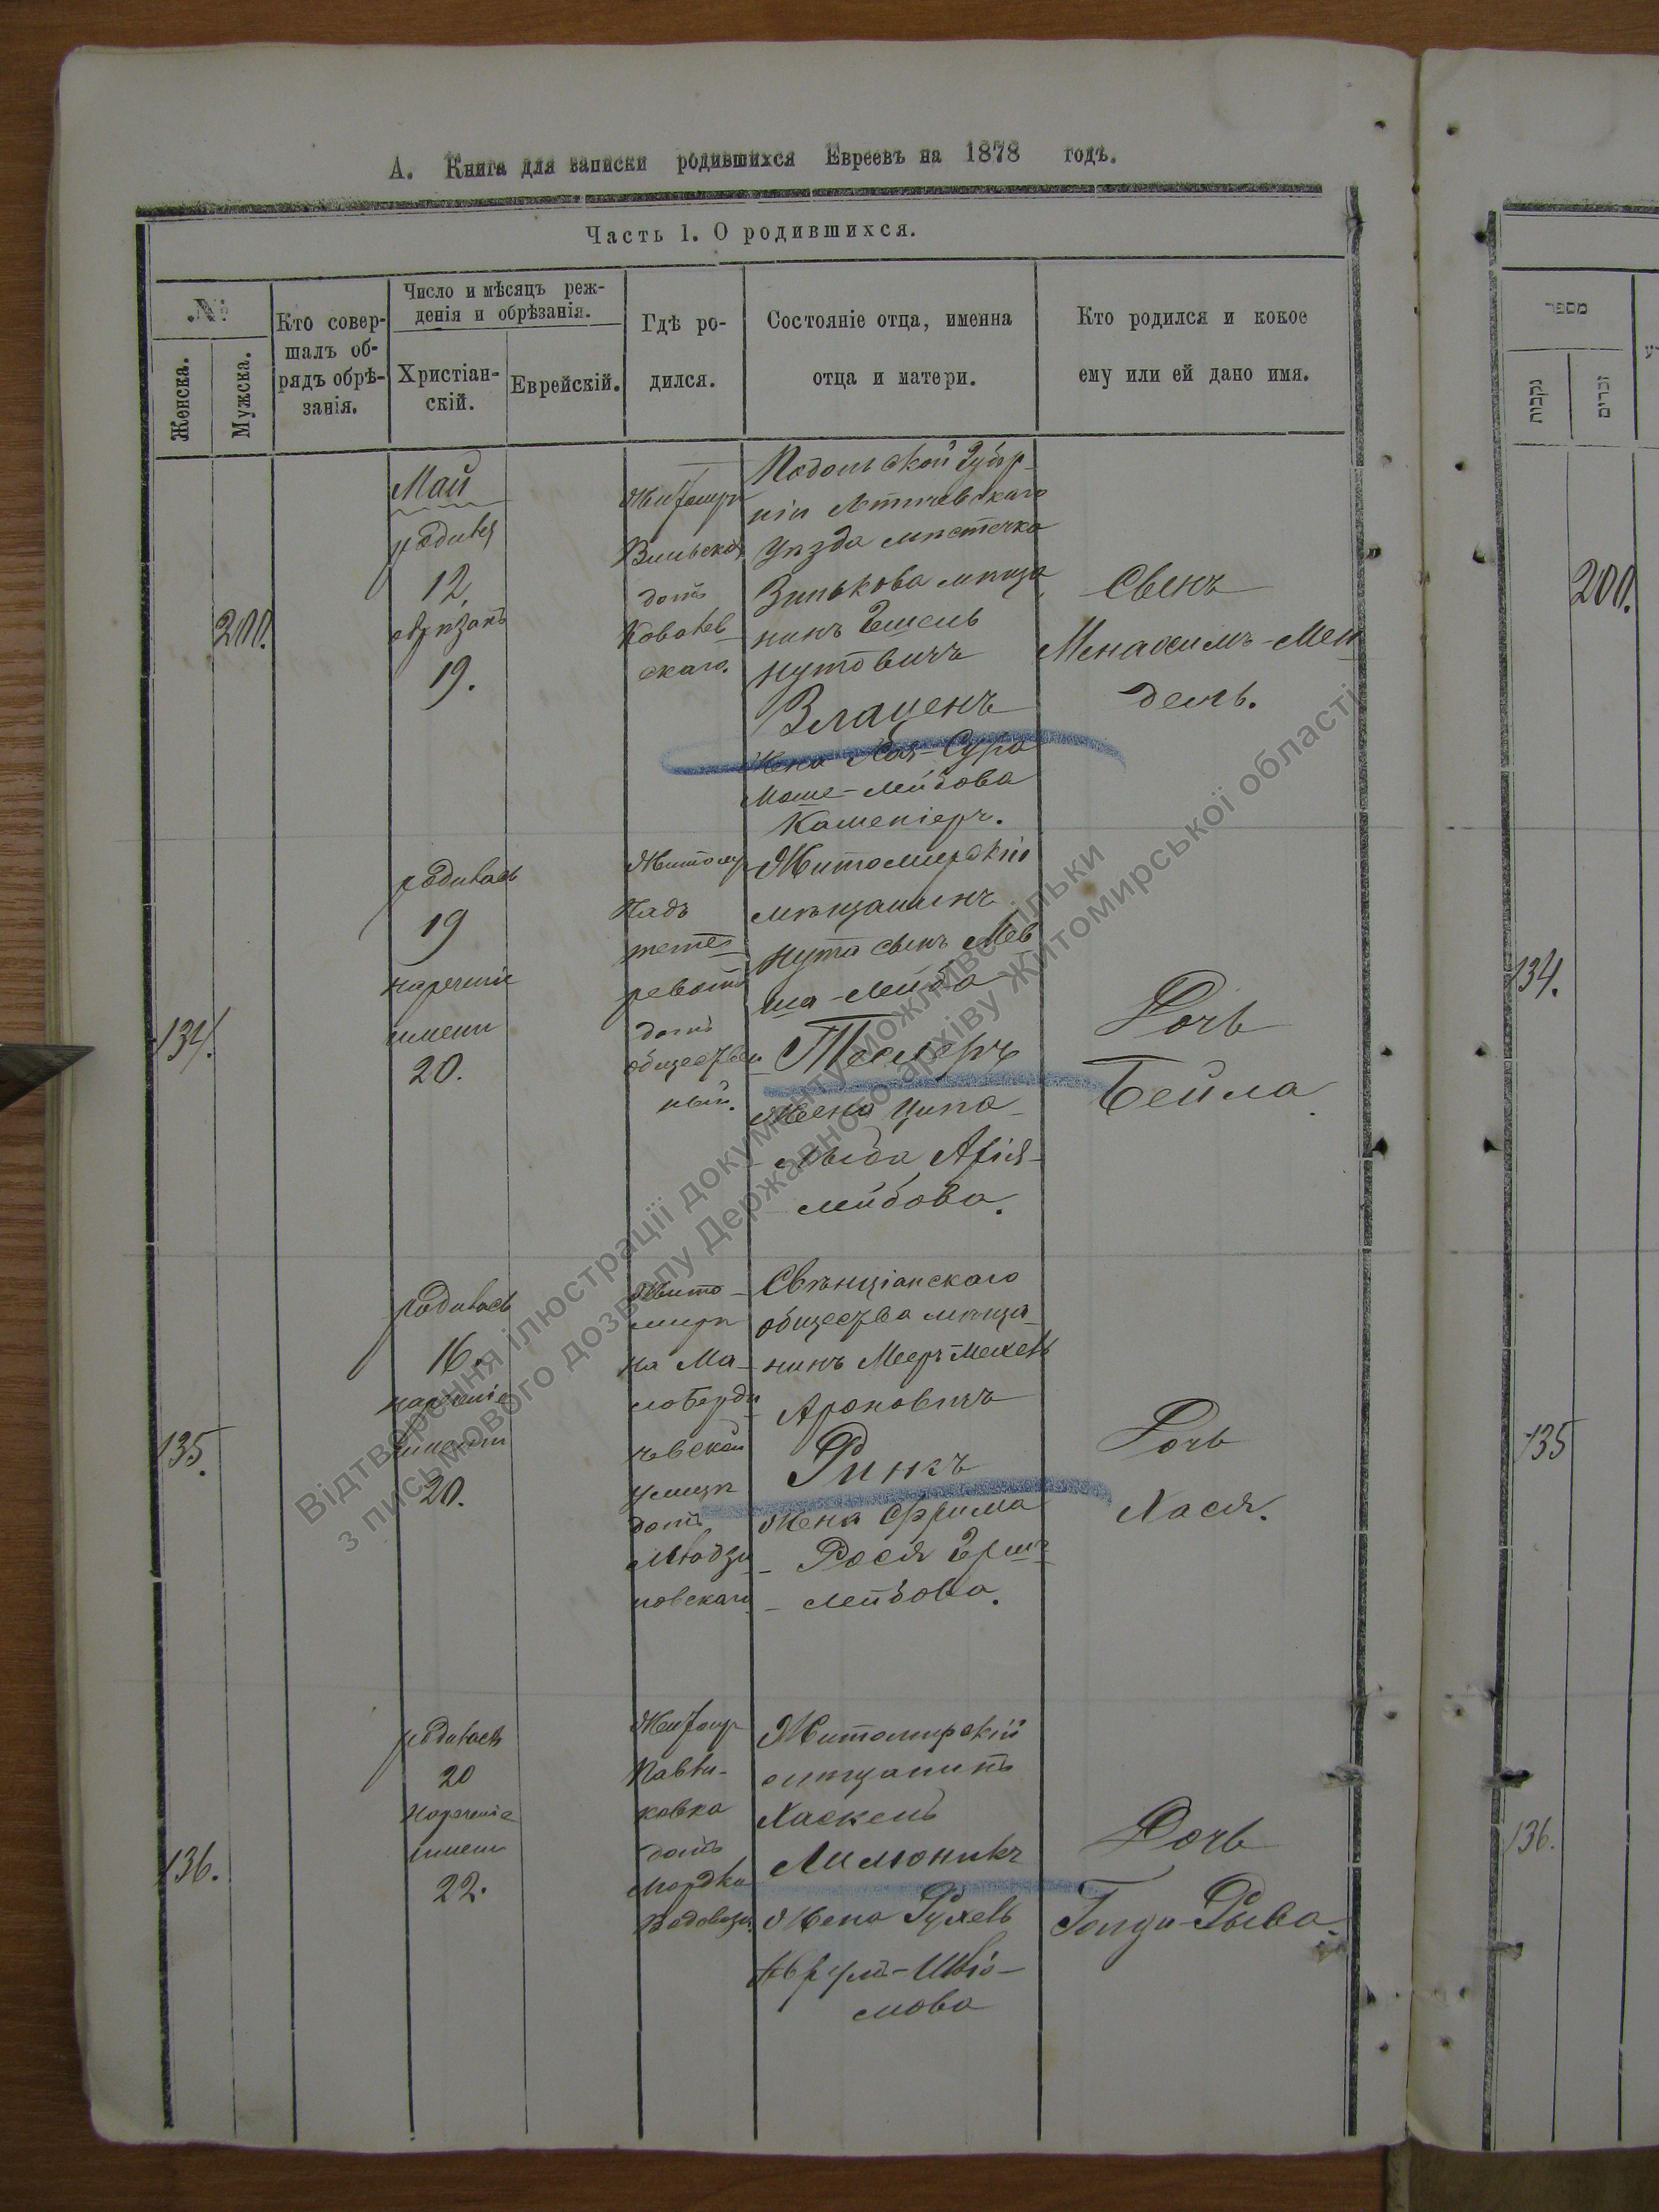 А. Книга для записки родившихся Евреевъ на 1878 годъ.
Часть 1. О родившихся.
№
Женска.
Мужска.
Кто совер-
шалъ об-
рядъ обрѣ-
занія.
Число и мѣсяцъ реж-
денія и обрѣзанія.
Христіан-
скій.
Еврейскій.
Гдѣ ро-
дился.
Состояніе отца, именна
отца и матери.
Кто родился и кокое
ему или ей дано имя.
200.
Май
родился
12.
обрѣзанъ
19.
Житомиръ
Вильская
домъ
скаго.
Подольской Губер-
ніи Летичевскаго
Уѣзда мѣстечка
Зинькова мѣща
нинъ
Нутовичъ
Злаценъ
Жена Хая-Сура
Моше-Лейбова
Сынъ
Менахимъ-Мен
дель.
134.
родилась
19
нареченіе
имени
20.
Житомир
Надъ
тете-
ревомъ
домъ
обществен
ный.
Житомирскій
мѣщанинъ
Нута сынъ Мов
ша-Лейба
Теслеръ
Жена Ципа
Лейбова.
Дочь
Бейла
135.
родилась
16.
нареченіе
имени
20.
Жито-
миръ
на Ма-
лоберди
чевской
улицѣ
домъ
новскаго
Свѣнціанскаго
общества мѣща-
нинъ Мееръ Михель
Ароновичъ
Ринкъ
Жена Фрима
Рося Герш-
Лейбова.
Дочь
Хася.
136.
родилась
20
нареченіе
имени
22.
Житомир
Павли-
ковка
домъ
Мордка
Житомирскій
мѣщанинъ
Хаскель
Лимоникъ
Жена Рухель
мова
Дочь
Голда-Рыва
מספר
נקבות
זכרים
200.
134.
135
136.
Відтворення ілюстрації документу можливе тільки
з письмового дозволу Державного архіву Житомирської області